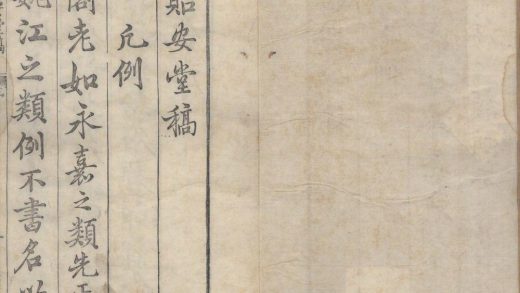 貽安堂稿
凡例
閣老如永嘉之類先
姚江之類例不書名